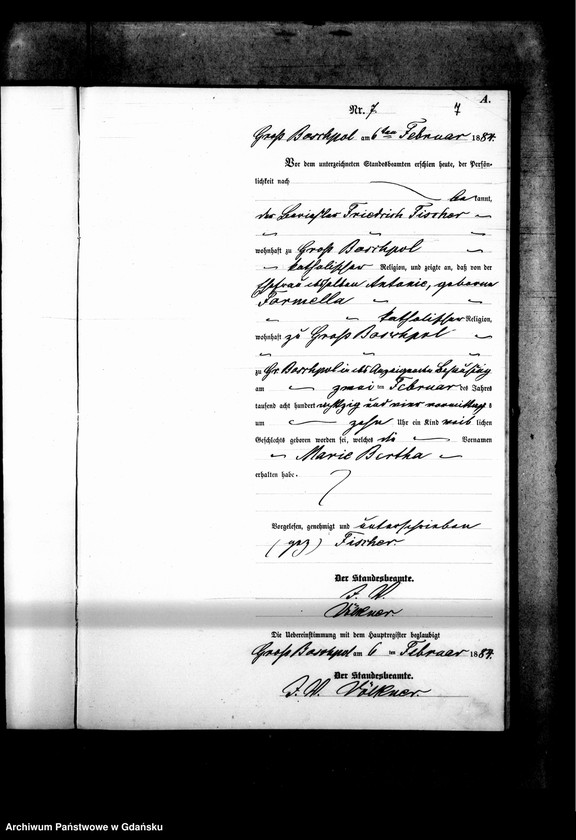 A.
Nr. 7 7
Groß Boschpol am 6ten Februar 1884.
Vor dem unterzeichneten Standesbeamten erschien heute, der Persön-
lichkeit nach
be kannt,
der Friedrich Fischer
wohnhaft zu Groß Boschpol
katholischer Religion, und zeigte an, daß von der
Ehefrau desselben Antonie, geborene
Formella
katholischer Religion,
wohnhaft zu Groß Boschpol
zu Gr. Boschpol in des Anzeigenden Behausung
am zwei ten Februar des Jahres
tausend acht hundert achtzig und vier vormittags
um zehn Uhr ein Kind weib lichen
Geschlechts geboren worden sei, welches die Vornamen
Marie Bertha
erhalten habe.
Vorgelesen, genehmigt und unterschrieben
(gez) Fischer
Der Standesbeamte.
J. V.
Völkner
Die Uebereinstimmung mit dem Hauptregister beglaubigt
Groß Boschpol am 6 ten Februar 1884.
Der Standesbeamte.
J. V. Völkner
Archiwum Państwowe w Gdańsku